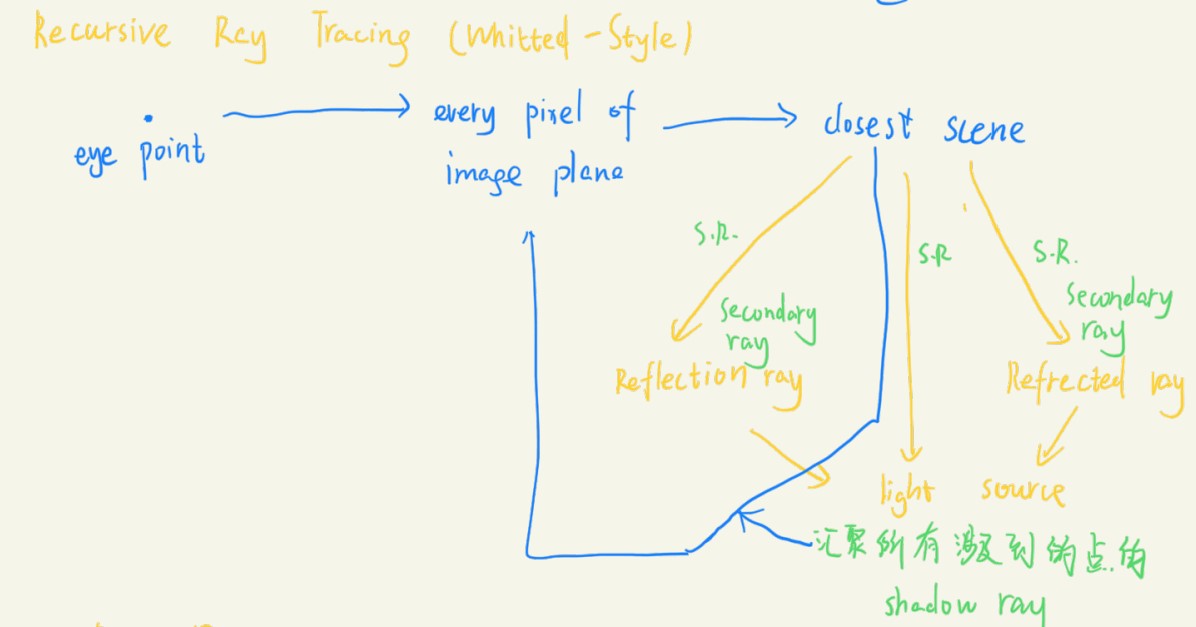 Recursive Ray Tracing (Whitted-Style)
eye point
every pixel of
image plane
closest scene
S.R.
S.R
S.R.
Secondary
ray
Secondary
ray
Reflection ray
Refrected ray
light source
汇聚所有涉及到的点的
shadow ray